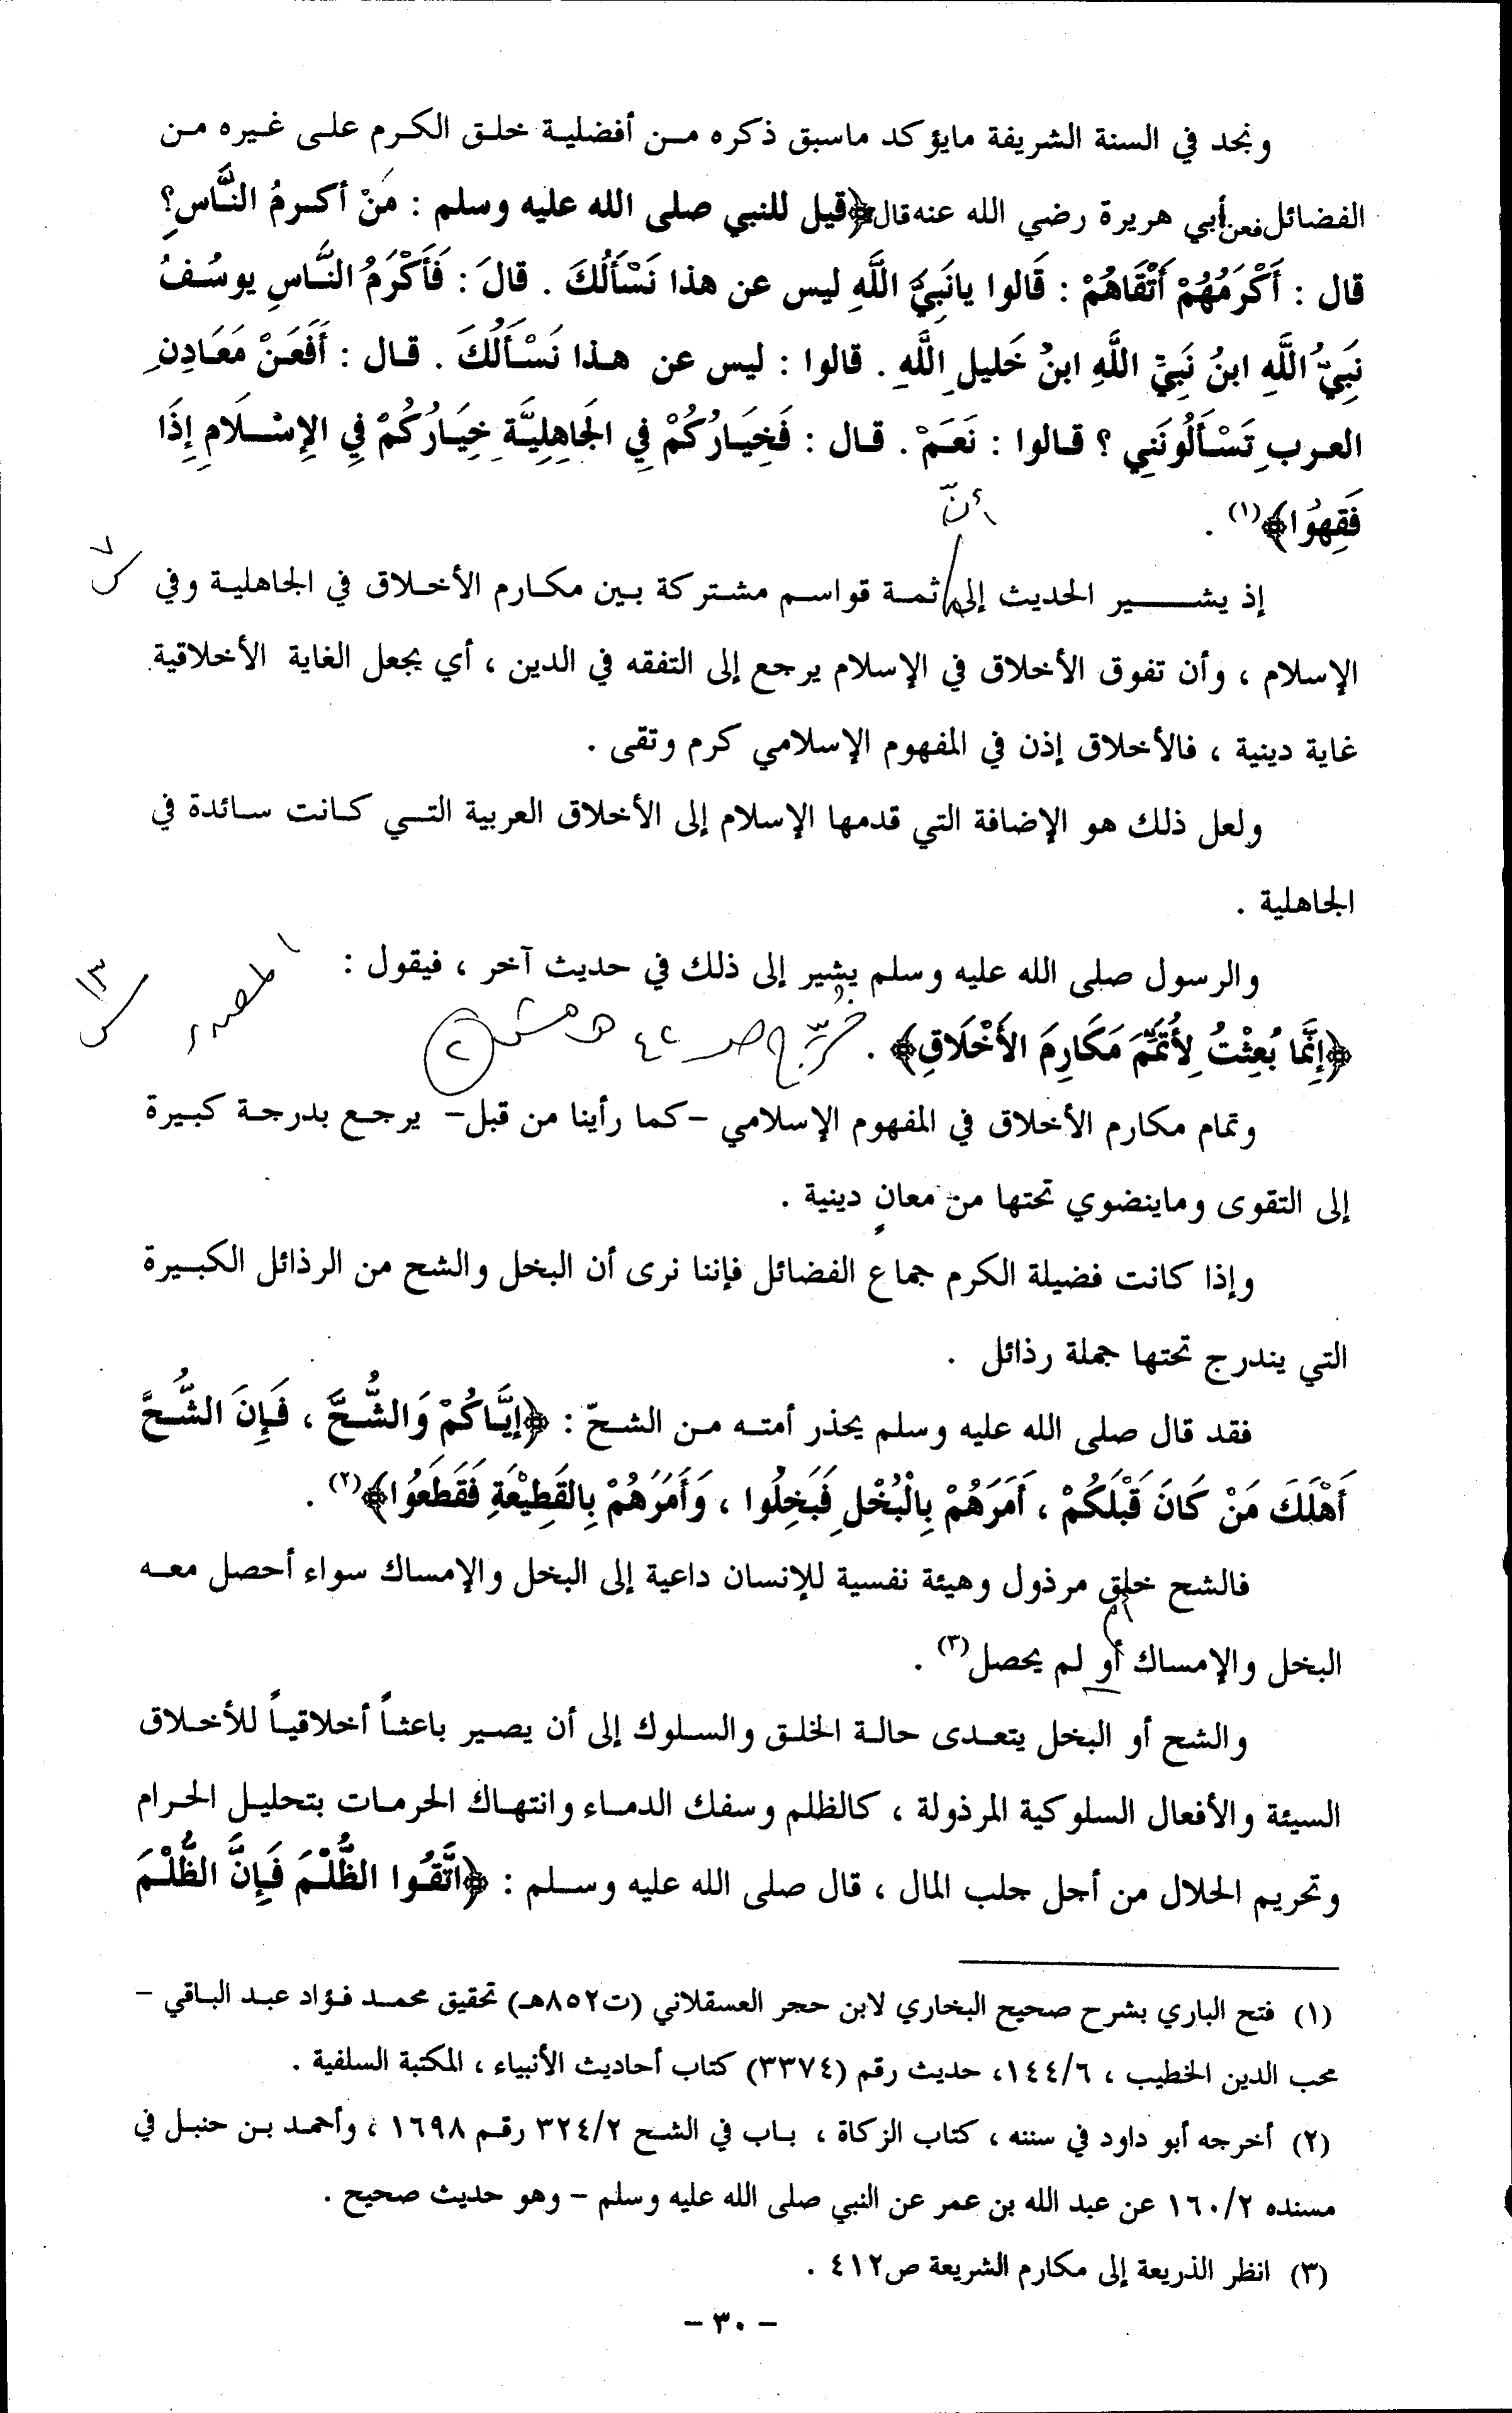 ونجد في السنة الشريفة مايؤكد ماسبق ذكره من أفضلية خلق الكرم على غيره من
الفضائل فعن أبي هريرة رضي الله عنه قال ﴿قيل للنبي صلى الله عليه وسلم : مَنْ أكرمُ النَّاسِ؟
قال : أَكْرَمُهُمْ أَتْقَاهُمْ : قَالوا يانَبِيَّ اللَّهِ ليس عن هذا نَسْأَلُكَ . قالَ : فَأَكْرَمُ النَّاسِ يوسُفُ
نَبِيُّ اللَّهِ ابنُ نَبِيِّ اللَّهِ ابنُ خَليلِ اللَّهِ . قالوا : ليس عن هذا نَسْأَلُكَ . قال : أَفَعَنْ مَعَادِنِ
العربِ تَسْأَلُونَنِي ؟ قالوا : نَعَمْ . قال : فَخِيَارُكُمْ فِي الجَاهِلِيَّةِ خِيَارُكُمْ فِي الإِسْلَامِ إِذَا
فَقِهُوا﴾(١) .
أنّ
إذ يشير الحديث إلى ثمة قواسم مشتركة بين مكارم الأخلاق في الجاهلية وفي
٧ س
الإسلام ، وأن تفوق الأخلاق في الإسلام يرجع إلى التفقه في الدين ، أي يجعل الغاية الأخلاقية
غاية دينية ، فالأخلاق إذن في المفهوم الإسلامي كرم وتقى .
ولعل ذلك هو الإضافة التي قدمها الإسلام إلى الأخلاق العربية التي كانت سائدة في
الجاهلية .
والرسول صلى الله عليه وسلم يشير إلى ذلك في حديث آخر ، فيقول :
المصدر
١٣ س
﴿إِنَّمَا بُعِثْتُ لِأُتَمِّمَ مَكَارِمَ الأَخْلَاقِ﴾ .
خرّج ص ٤٢ هامش ٢
وتمام مكارم الأخلاق في المفهوم الإسلامي -كما رأينا من قبل- يرجع بدرجة كبيرة
إلى التقوى وماينضوي تحتها من معانٍ دينية .
وإذا كانت فضيلة الكرم جماع الفضائل فإننا نرى أن البخل والشح من الرذائل الكبيرة
التي يندرج تحتها جملة رذائل .
فقد قال صلى الله عليه وسلم يحذر أمته من الشحّ : ﴿إِيَّاكُمْ وَالشُّحَّ ، فَإِنَ الشُّحَّ
أَهْلَكَ مَنْ كَانَ قَبْلَكُمْ ، أَمَرَهُمْ بِالْبُخْلِ فَبَخِلُوا ، وَأَمَرَهُمْ بِالقَطِيْعَةِ فَقَطَعَوُا﴾(٢) .
فالشح خلق مرذول وهيئة نفسية للإنسان داعية إلى البخل والإمساك سواء أحصل معه
أم
البخل والإمساك أو لم يحصل(٣) .
والشح أو البخل يتعدى حالة الخلق والسلوك إلى أن يصير باعثاً أخلاقياً للأخلاق
السيئة والأفعال السلوكية المرذولة ، كالظلم وسفك الدماء وانتهاك الحرمات بتحليل الحرام
وتحريم الحلال من أجل جلب المال ، قال صلى الله عليه وسلم : ﴿اتَّقُوا الظُّلْمَ فَإِنَّ الظُّلْمَ
(١) فتح الباري بشرح صحيح البخاري لابن حجر العسقلاني (ت٨٥٢هـ) تحقيق محمد فؤاد عبد الباقي -
محب الدين الخطيب ، ١٤٤/٦، حديث رقم (٣٣٧٤) كتاب أحاديث الأنبياء ، المكتبة السلفية .
(٢) أخرجه أبو داود في سننه ، كتاب الزكاة ، باب في الشح ٣٢٤/٢ رقم ١٦٩٨ ، وأحمد بن حنبل في
مسنده ١٦٠/٢ عن عبد الله بن عمر عن النبي صلى الله عليه وسلم - وهو حديث صحيح .
(٣) انظر الذريعة إلى مكارم الشريعة ص٤١٢ .
- ٣٠ -